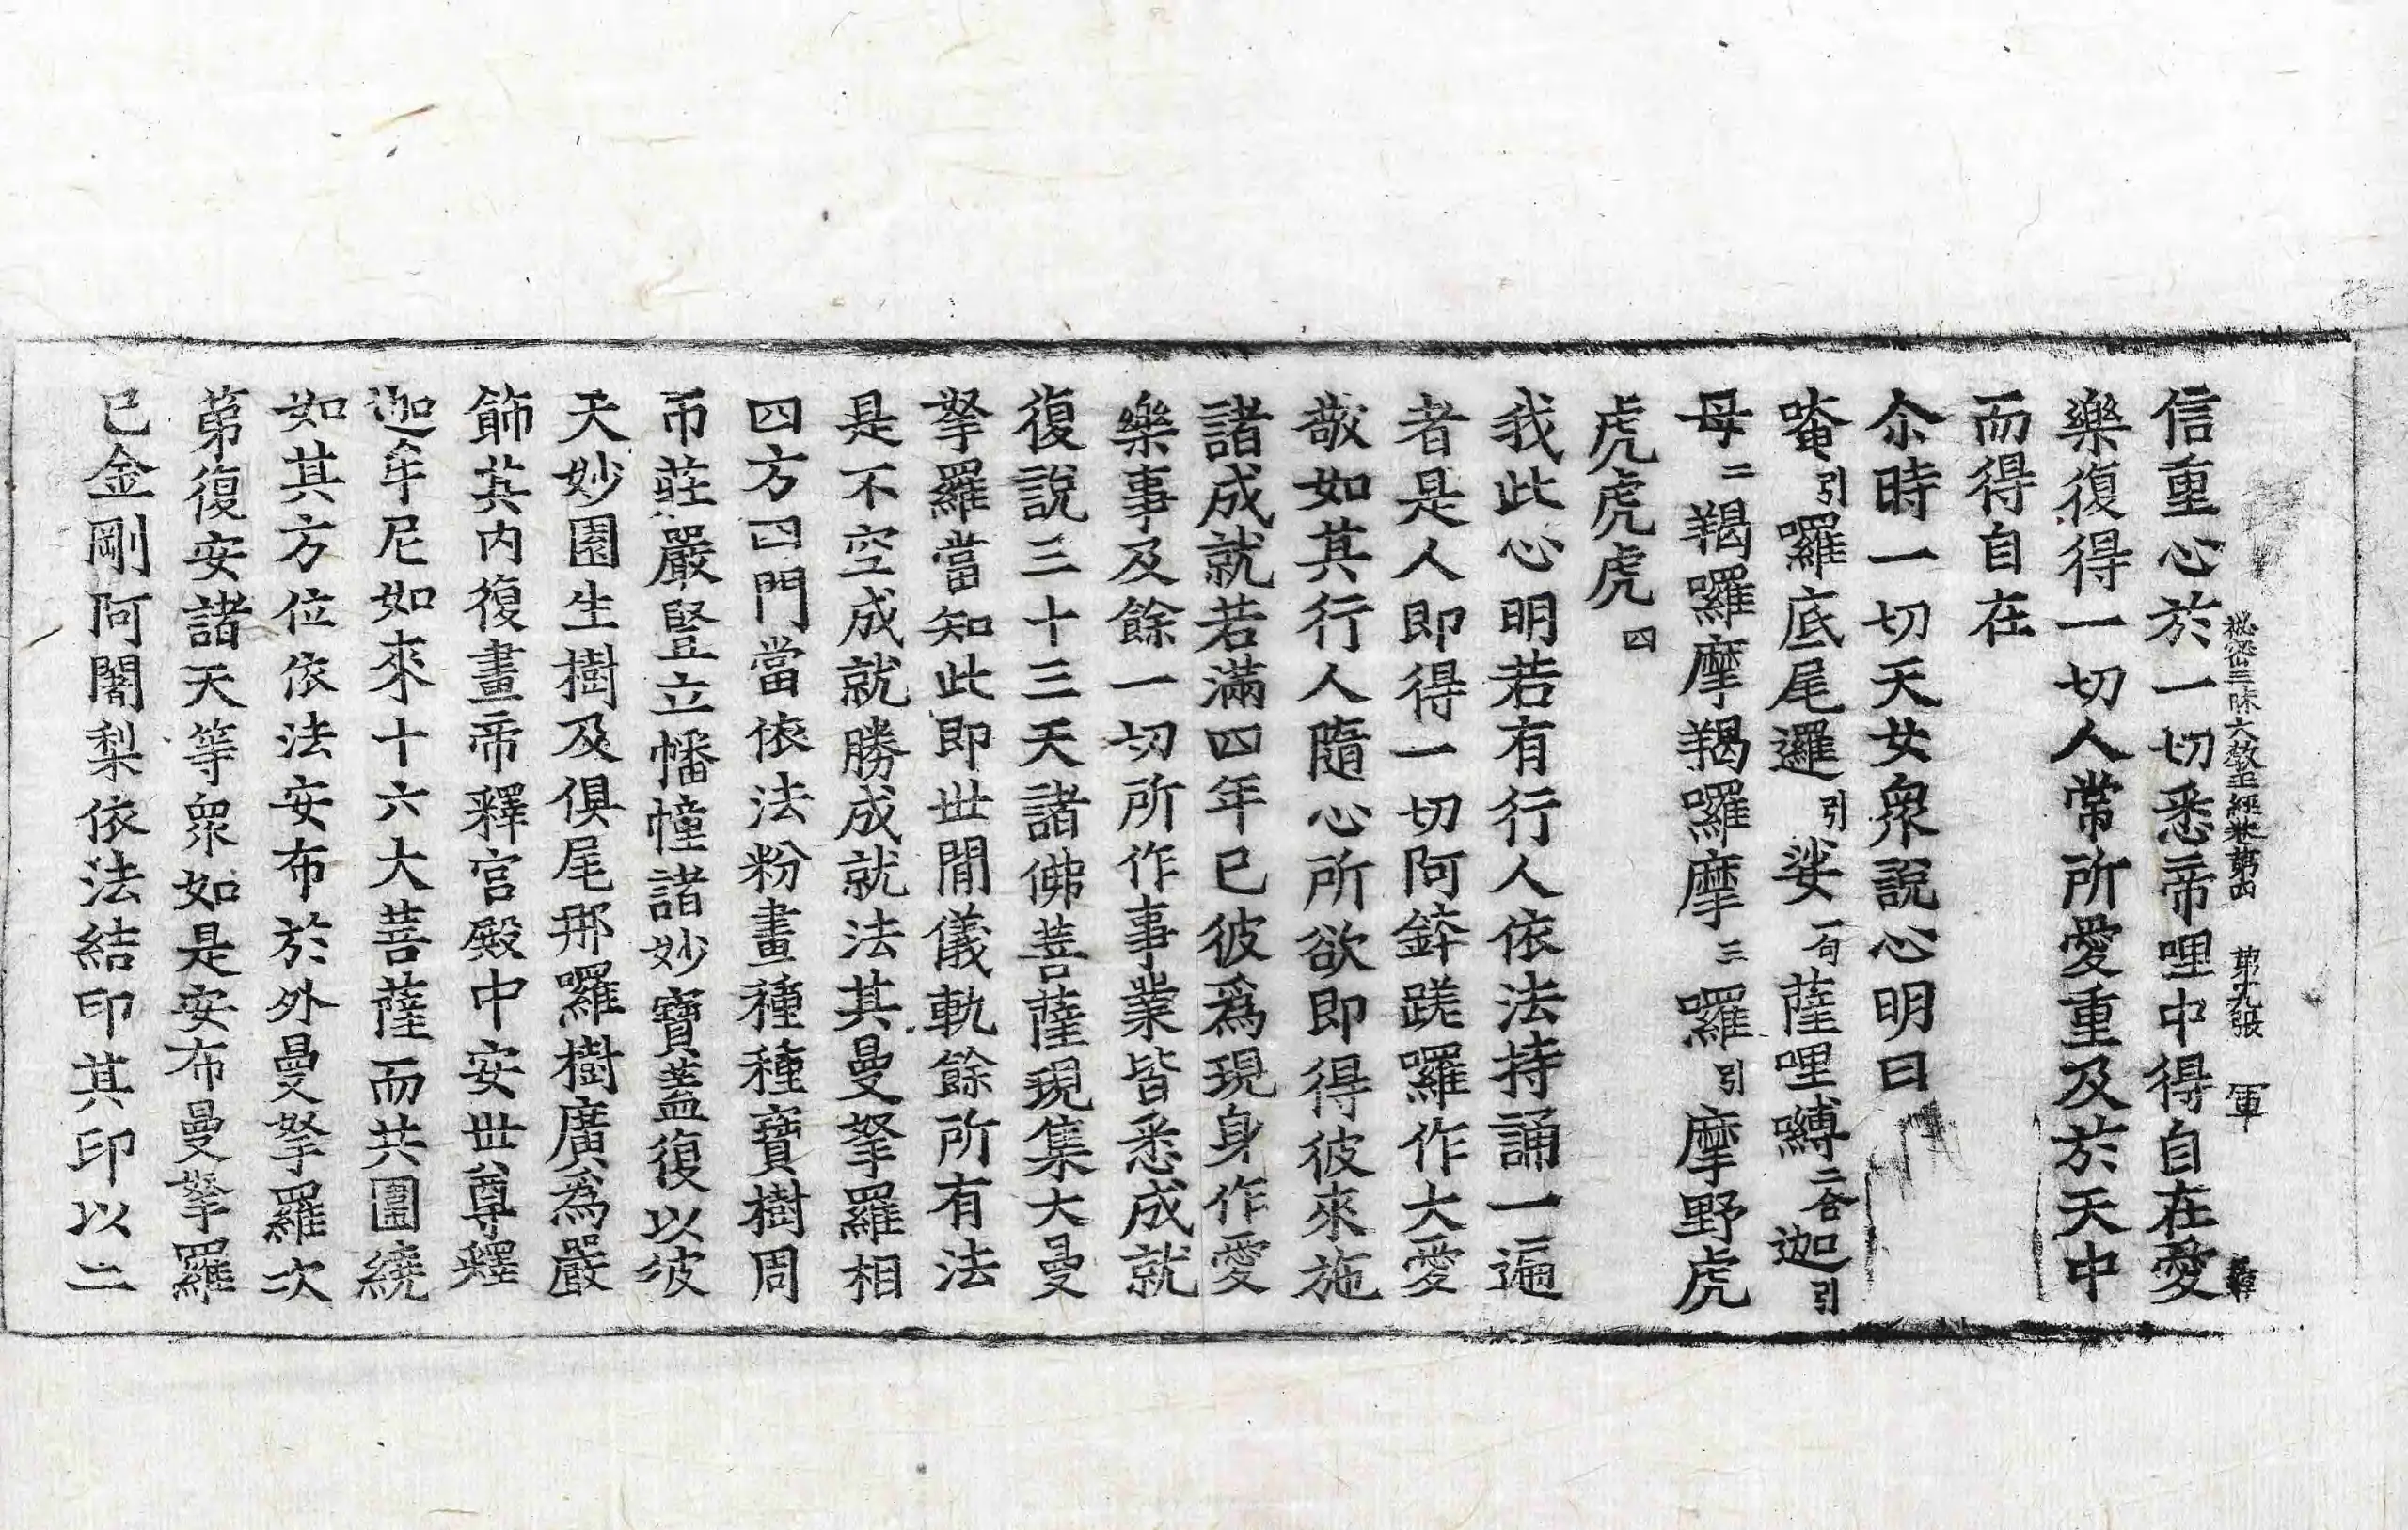 秘密三昧大教王經卷第四　第九張　軍
信重心於一切悉帝哩中得自在愛
樂復得一切人常所愛重及於天中
而得自在
尒時一切天女衆說心明曰
唵引囉底尾邏引娑一句薩哩嚩二合迦引
母二羯囉摩羯囉摩三囉引摩野虎
虎虎虎四
我此心明若有行人依法持誦一遍
者是人即得一切阿鋅蹉囉作大愛
敬如其行人隨心所欲即得彼來施
諸成就若滿四年已彼爲現身作愛
樂事及餘一切所作事業皆悉成就
復說三十三天諸佛菩薩現集大曼
拏羅當知此即世閒儀軌餘所有法
是不空成就勝成就法其曼拏羅相
四方四門當依法粉畫種種寶樹周
帀莊嚴豎立幡幢諸妙寶蓋復以彼
天妙園生樹及俱尾那囉樹廣爲嚴
飾其内復畫帝釋宮殿中安世尊釋
迦牟尼如來十六大菩薩而共圍繞
如其方位依法安布於外曼拏羅次
第復安諸天等衆如是安布曼拏羅
已金剛阿闍梨依法結印其印以二